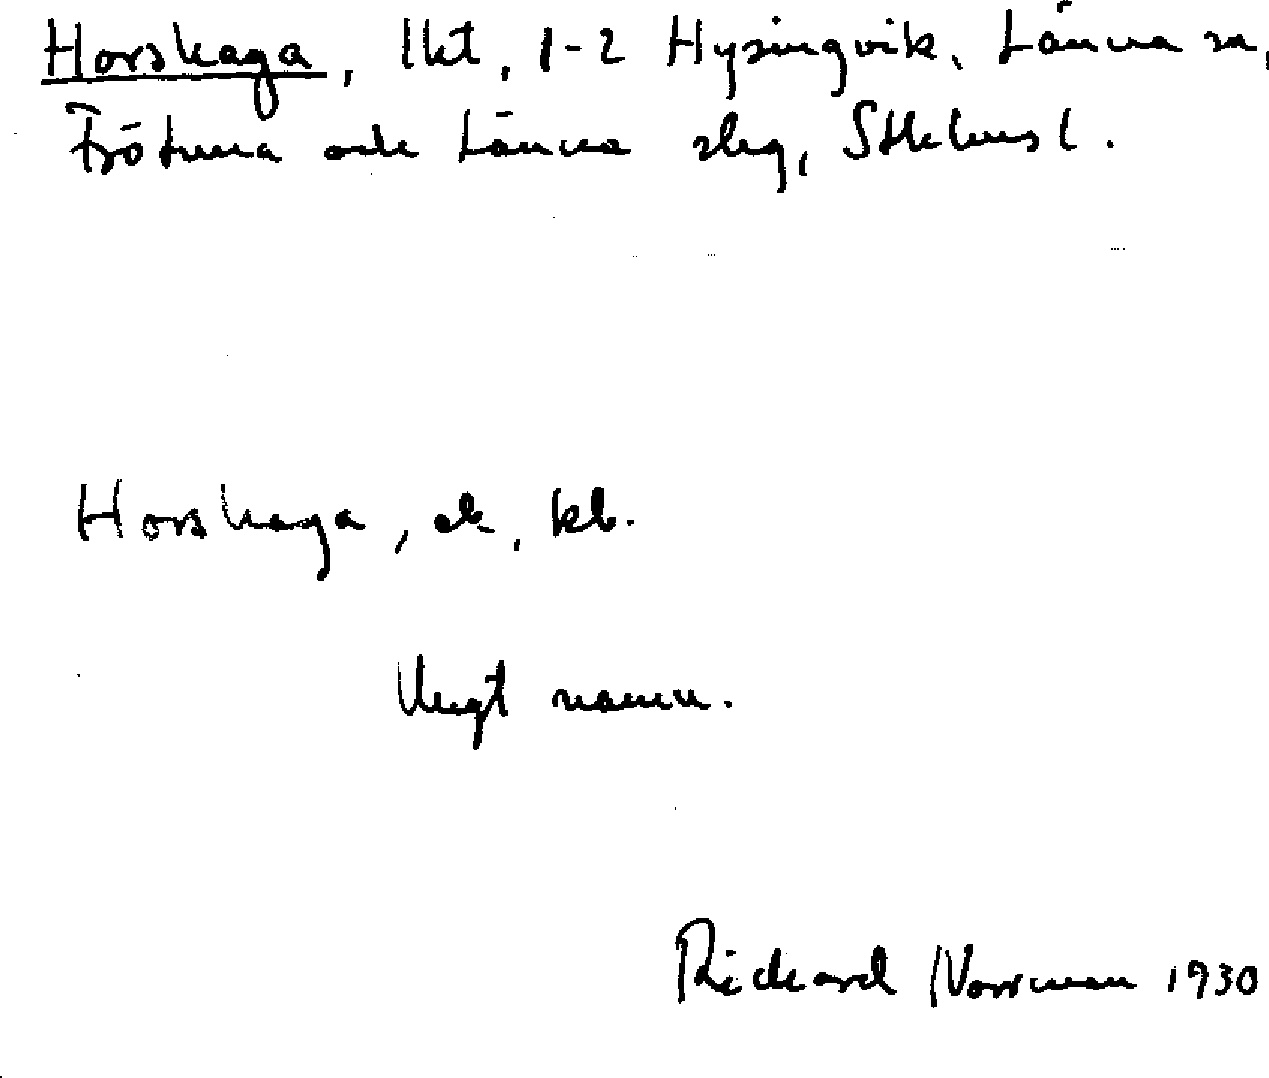 Horshaga, lkt, 1-2 Hysingvik, Länna sn,
Frötuna och Länna slg, Sthlms l.
Horshaga, ek, kb.
Ungt namn.
Rickard Norrman 1930